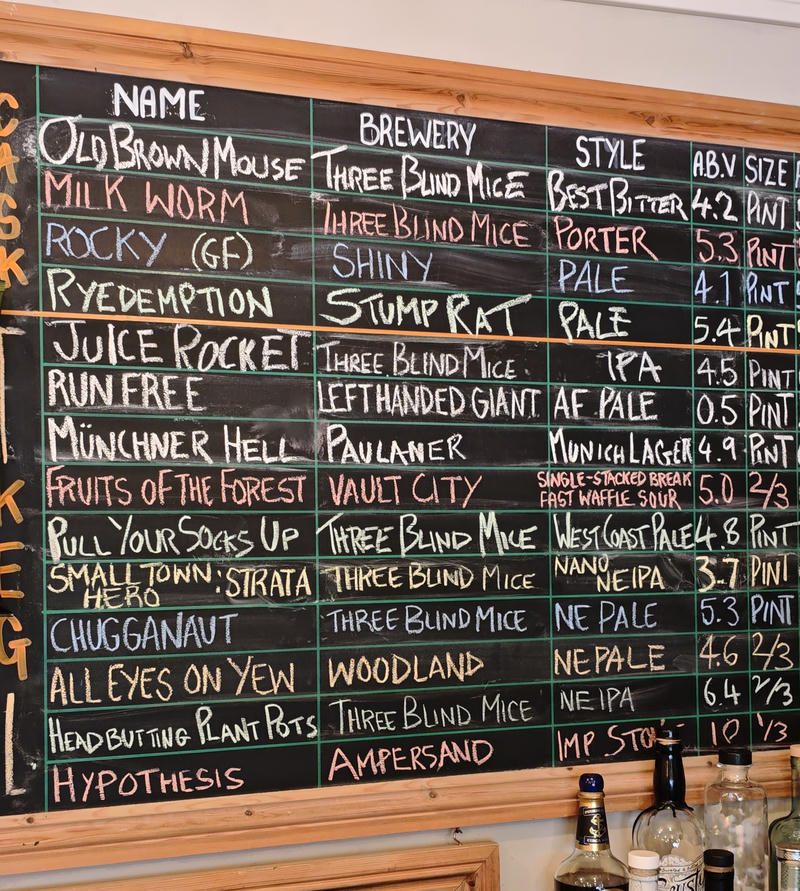 CASK
NAME BREWERY STYLE A.B.V SIZE
OLD BROWN MOUSE THREE BLIND MICE BEST BITTER 4.2 PINT
MILK WORM THREE BLIND MICE PORTER 5.3 PINT
ROCKY (GF) SHINY PALE 4.1 PINT
RYEDEMPTION STUMP RAT PALE 5.4 PINT
KEG
JUICE ROCKET THREE BLIND MICE IPA 4.5 PINT
RUN FREE LEFT HANDED GIANT AF PALE 0.5 PINT
MÜNCHNER HELL PAULANER MUNICH LAGER 4.9 PINT
FRUITS OF THE FOREST VAULT CITY SINGLE-STACKED BREAK
FAST WAFFLE SOUR 5.0 2/3
PULL YOUR SOCKS UP THREE BLIND MICE WEST COAST PALE 4.8 PINT
SMALL TOWN HERO : STRATA THREE BLIND MICE NANO NEIPA 3.7 PINT
CHUGGANAUT THREE BLIND MICE NE PALE 5.3 PINT
ALL EYES ON YEW WOODLAND NE PALE 4.6 2/3
HEADBUTTING PLANT POTS THREE BLIND MICE NEIPA 6.4 2/3
HYPOTHESIS AMPERSAND IMP 10 1/3